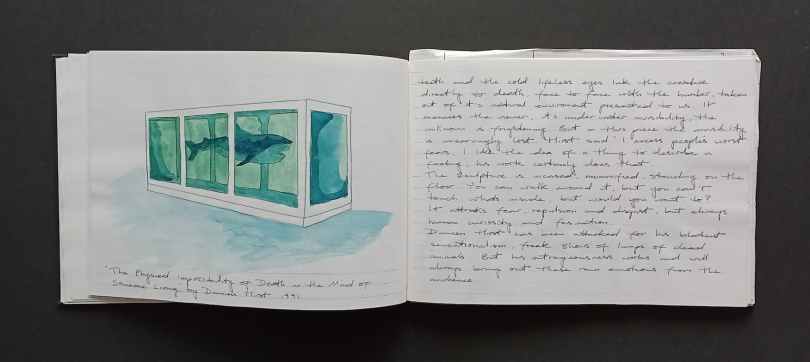 "The Physical Impossibility of Death in the Mind of
Someone Living by Damien Hirst 1991
teeth and the cold lifeless eyes link the creature
directly to death, face to face with the hunter, taken
out of it's natural enviroment presented to us. It
menaces the viewer. It's under water invisibility, the
unknown is frightening. But in this piece the invisibility
is lost. Hirst said 'I access peoples worst
fears, I like the idea of a thing to describe a
feeling, his work certainly does that.
The sculpture is incased, mummified, standing on the
floor. You can walk around it, but you can't
touch, whats inside, but would you want to?
It attracts fear, repulsion and disgust, but always
human curiosity and fascination.
Damien Hirst has been attacked for his blatant
sensationalism, freak shows of lumps of dead
animals. But his outrageousness works and will
always bring out these raw emotions from the
audience